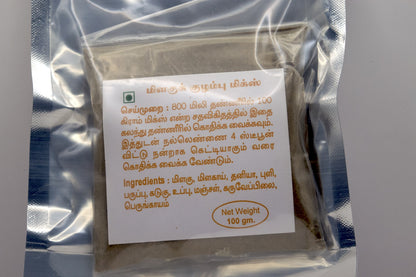 மிளகுக் குழம்பு மிக்ஸ்
செய்முறை : 800 மிலி தண்ணீரில் 100
கிராம் மிக்ஸ் என்ற சதவிகிதத்தில் இதை
கலந்து தண்ணீரில் கொதிக்க வைக்கவும்.
இத்துடன் நல்லெண்ணை 4 ஸ்பூன்
விட்டு நன்றாக கெட்டியாகும் வரை
கொதிக்க வைக்க வேண்டும்.
Ingredients : மிளகு, மிளகாய், தனியா, புளி,
பருப்பு, கடுகு, உப்பு, மஞ்சள், கருவேப்பிலை,
பெருங்காயம்
Net Weight
100 gm.